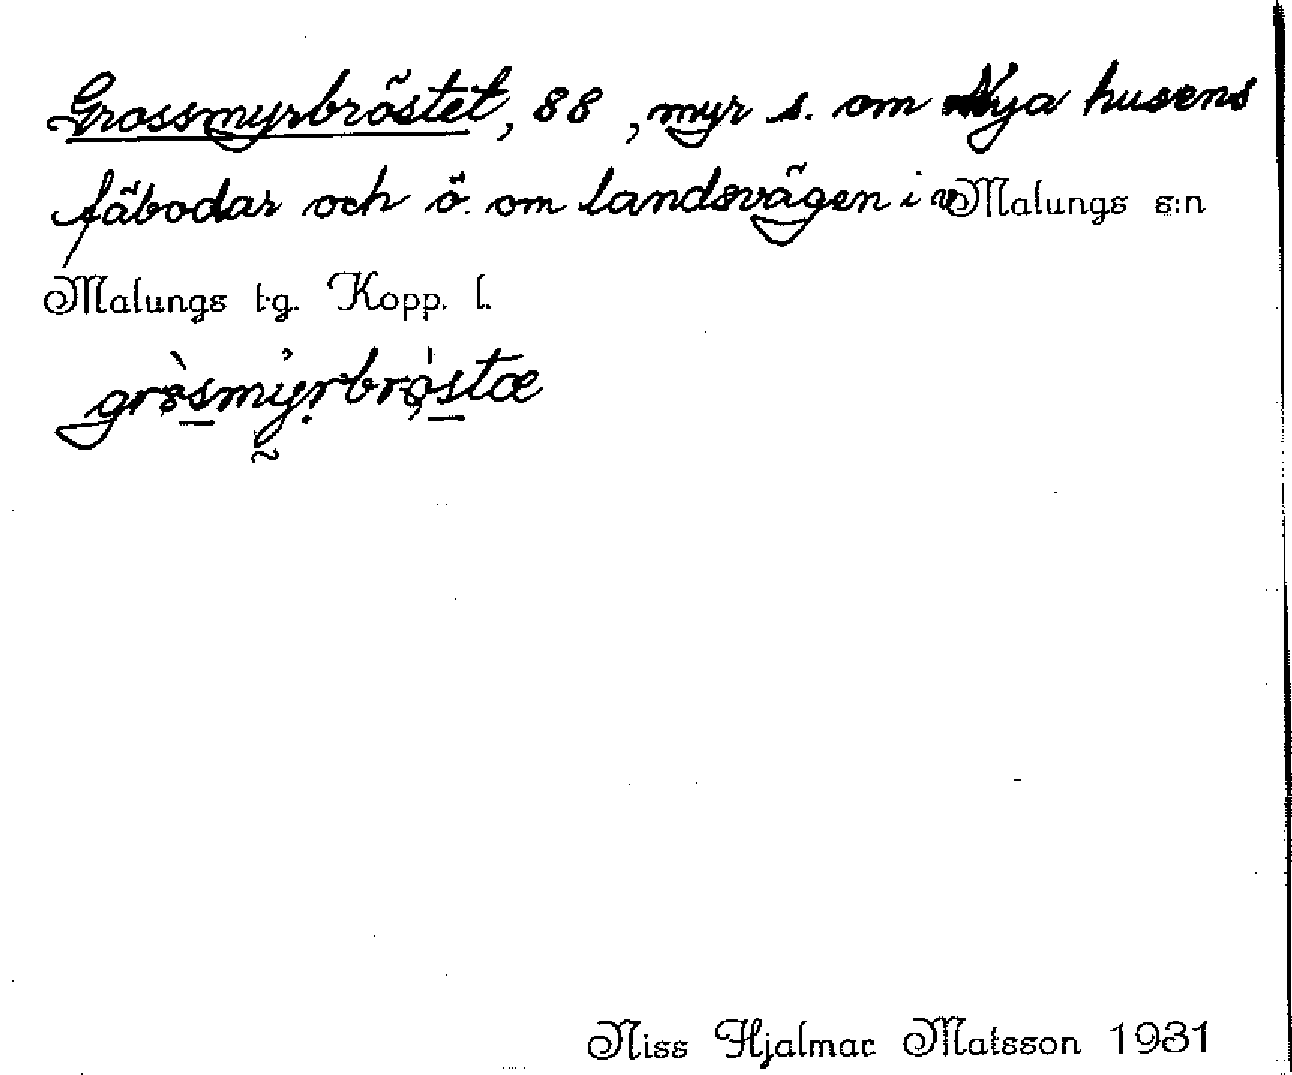 Grossmyrbröstet, 88, myr s. om Nya husens
fäbodar och ö. om landsvägen i v Malungs s:n
Malungs t.g. Kopp. l.
gròsmy̓rbrǫ́stæ
Niss Hjalmar Matsson 1931